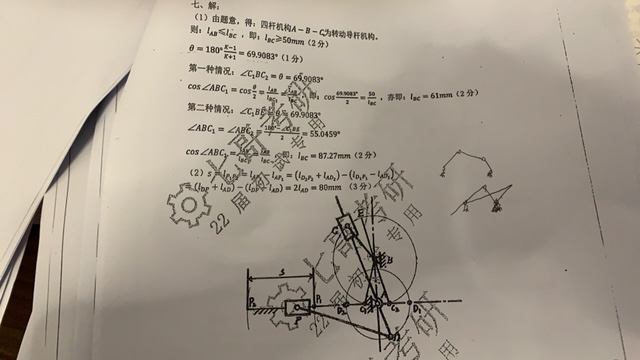 七、解：
（1）由题意，得：四杆机构A－B－C为转动导杆机构。
则：l_AB≤l_BC，即：l_BC≥50mm（2分）
θ = 180° K−1/K+1 = 69.9083°（1分）
第一种情况：∠C₁BC₂ = θ = 69.9083°
cos∠ABC₁ = cos θ/2 = l_AB/l_BC₁ 即：cos 69.9083°/2 = 50/l_BC，亦即：l_BC = 61mm（2分）
第二种情况：∠C₁BE = 69.9083°
∠ABC₁ = ∠ABC₂ = 180°−∠C₁BE/2 = 55.0459°
cos∠ABC₁ = 即：l_BC = 87.27mm（2分）
（2）s = l_AP₁ = (l_D₂P₂ + l_AD₂) − (l_D₁P₁ − l_AD₁)
= (l_DP + l_AD) − (l_DP − l_AD) = 2l_AD = 80mm （3分）
22届 专用
E
C
B
S
P₂ P₁ D₂ C₁ C₂ D₁
P
D